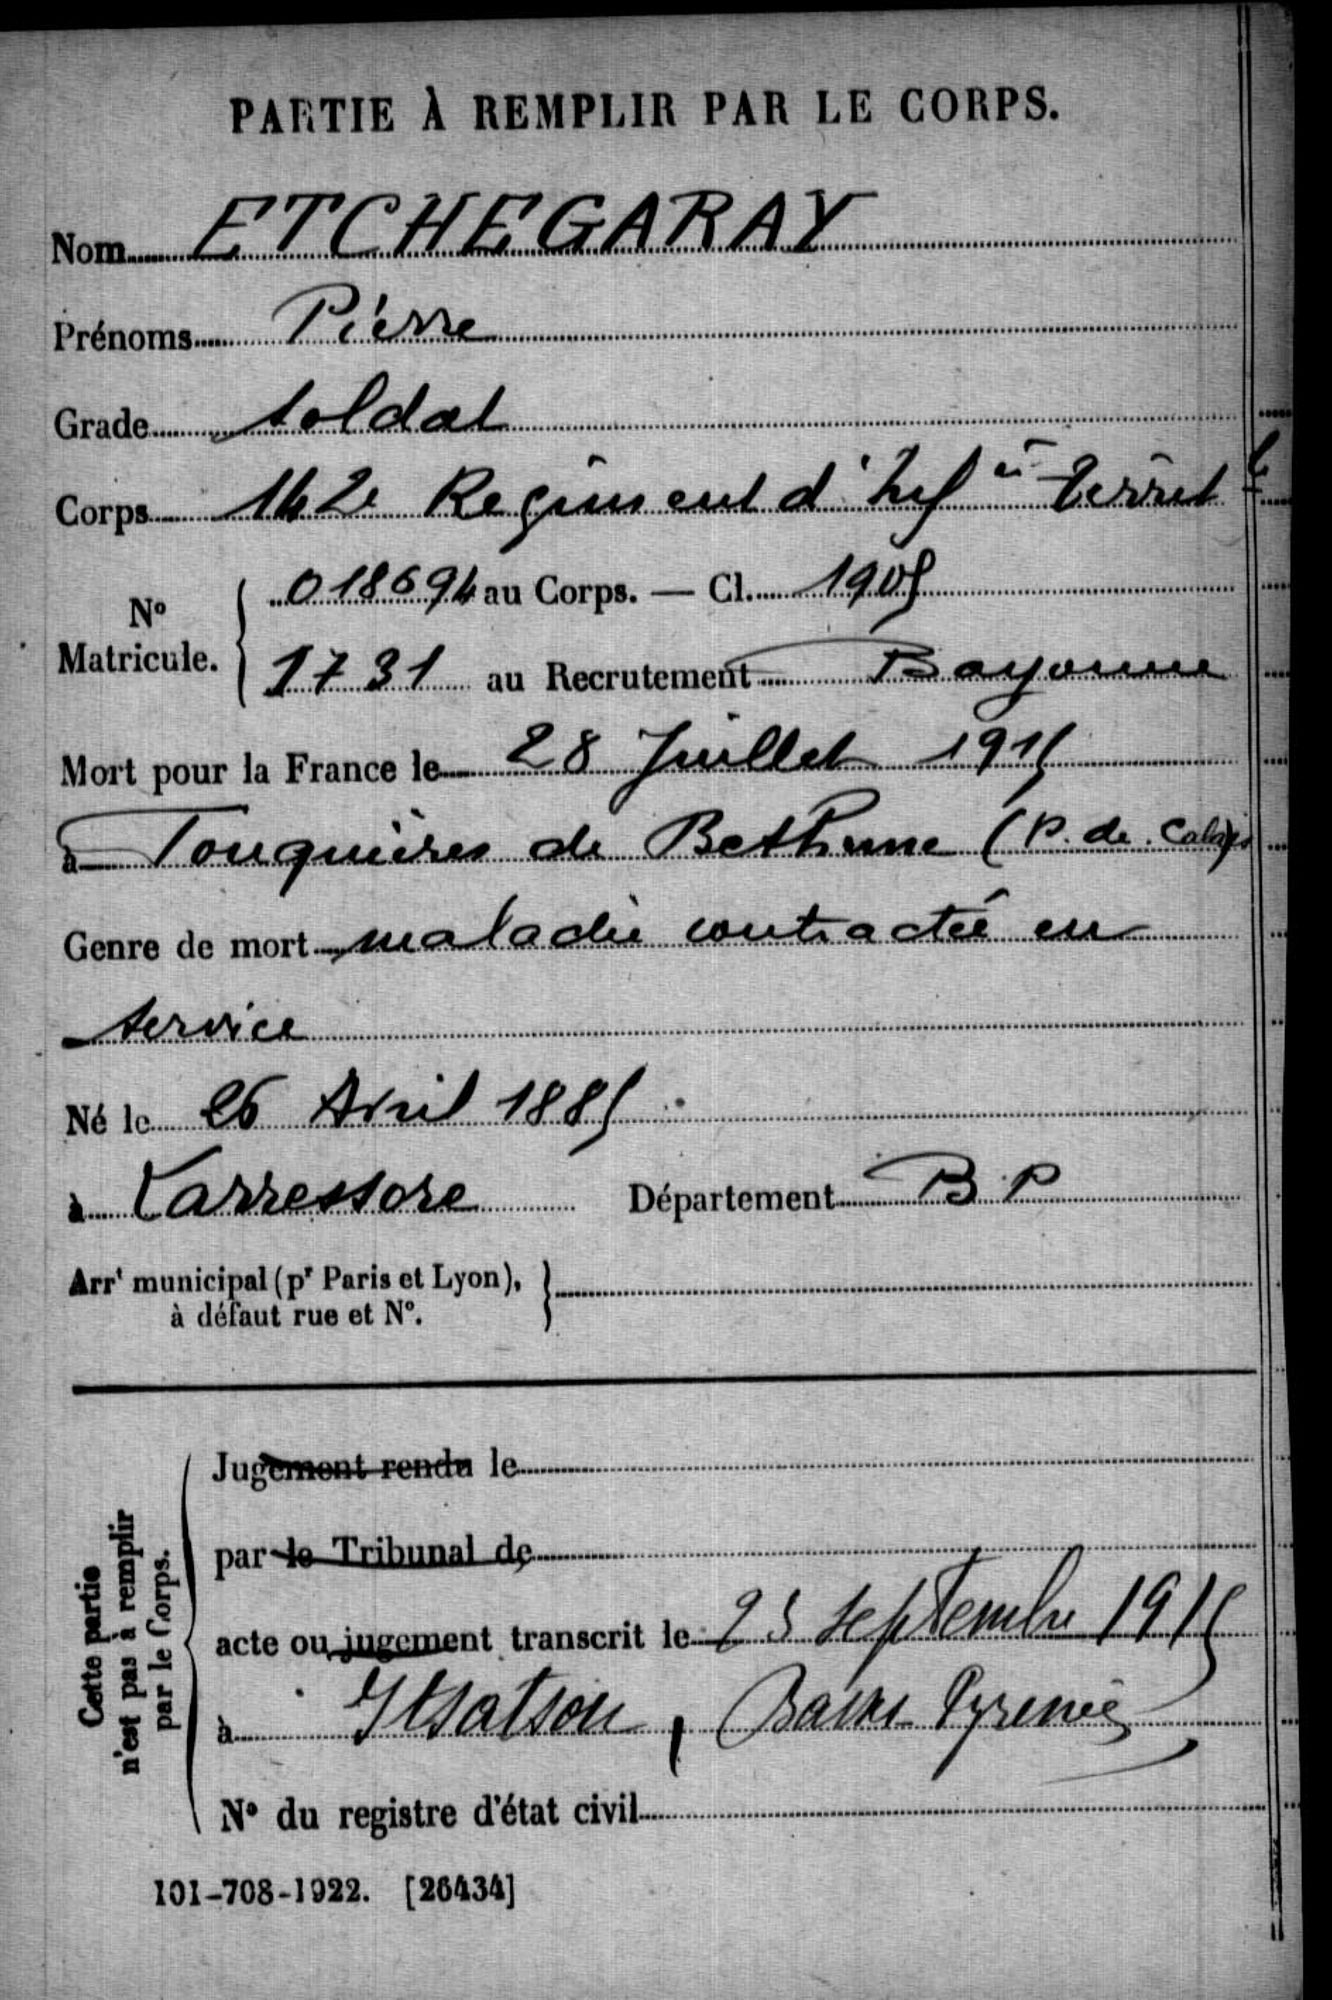 PARTIE À REMPLIR PAR LE CORPS.
Nom ETCHEGARAY
Prénoms Pierre
Grade soldat
Corps 142e Regiment d'Infie territ
No Matricule. 018694 au Corps. — Cl. 1905
1731 au Recrutement Bayonne
Mort pour la France le 28 Juillet 1915
à Fouquières de Bethune (P. de Calais)
Genre de mort maladie contractée en
service
Né le 26 Avril 1885
à Larressore Département B.P
Arrt municipal (pr Paris et Lyon),
à défaut rue et No.
Cette partie
n'est pas à remplir
par le Corps.
Jugement rendu le
par le Tribunal de
acte ou jugement transcrit le 23 septembre 1915
à Itsatsou, Basses Pyrenées
No du registre d'état civil
101-708-1922. [26434]